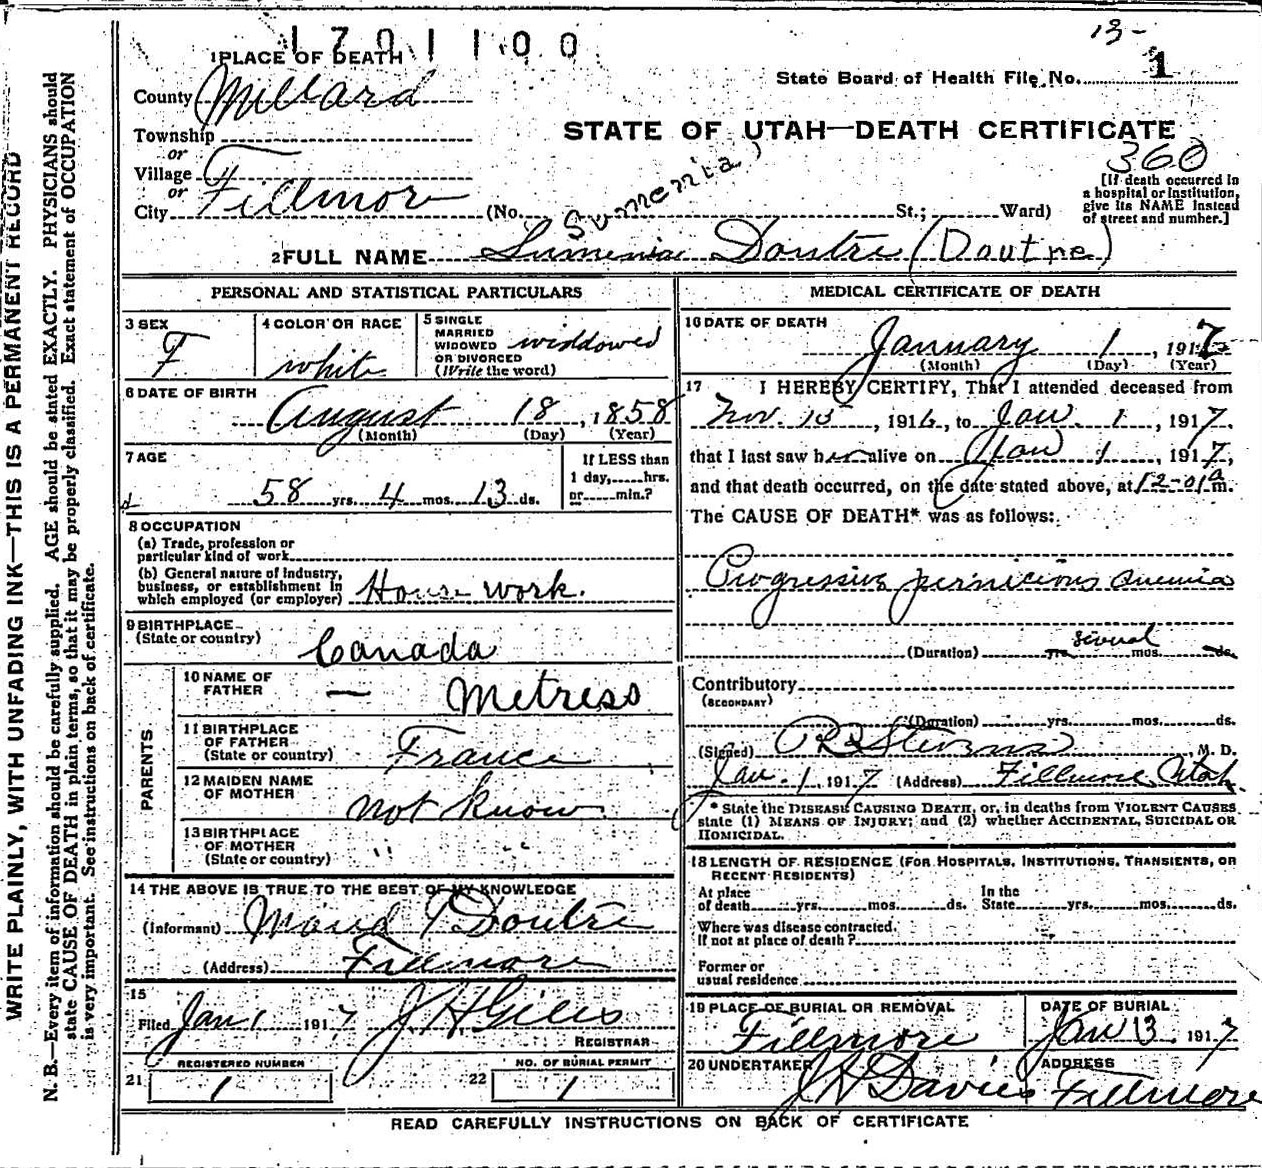 1701100
13-
1 PLACE OF DEATH
State Board of Health File No. 1
County Millard
STATE OF UTAH—DEATH CERTIFICATE
Township
or
Village
or
City Fillmore (No. St.; Ward)
360
[If death occurred in
a hospital or institution,
give its NAME instead
of street and number.]
Sumenia)
2 FULL NAME Sumenia Doutre (Doutre)
PERSONAL AND STATISTICAL PARTICULARS
3 SEX
F
4 COLOR OR RACE
white
5 SINGLE
MARRIED
WIDOWED
OR DIVORCED
(Write the word)
widdowed
6 DATE OF BIRTH
August 18, 1858
(Month) (Day) (Year)
7 AGE
58 yrs. 4 mos. 13 ds.
If LESS than
1 day, hrs.
or min.?
8 OCCUPATION
(a) Trade, profession or
particular kind of work
(b) General nature of industry,
business, or establishment in
which employed (or employer) House work.
9 BIRTHPLACE
(State or country)
Canada
PARENTS
10 NAME OF
FATHER
— Metress
11 BIRTHPLACE
OF FATHER
(State or country)
France
12 MAIDEN NAME
OF MOTHER
not know
13 BIRTHPLACE
OF MOTHER
(State or country)
" "
14 THE ABOVE IS TRUE TO THE BEST OF MY KNOWLEDGE
(Informant) Maud P Doutre
(Address) Fillmore
15
Filed Jan 1 1917 J H Giles
REGISTRAR
REGISTERED NUMBER
21 1
NO. OF BURIAL PERMIT
22 1
MEDICAL CERTIFICATE OF DEATH
16 DATE OF DEATH
January 1, 1917
(Month) (Day) (Year)
17 I HEREBY CERTIFY, That I attended deceased from
Nov. 15, 1916, to Jan. 1, 1917,
that I last saw her alive on Jan 1, 1917,
and that death occurred, on the date stated above, at 12-01 a m.
The CAUSE OF DEATH* was as follows:
Progressive pernicious anemia
(Duration) yrs. several mos. ds.
Contributory
(SECONDARY)
(Duration) yrs. mos. ds.
(Signed) R Stevens, M. D.
Jan. 1, 1917 (Address) Fillmore, Utah
* State the DISEASE CAUSING DEATH, or, in deaths from VIOLENT CAUSES
state (1) MEANS OF INJURY; and (2) whether ACCIDENTAL, SUICIDAL OR
HOMICIDAL.
18 LENGTH OF RESIDENCE (FOR HOSPITALS, INSTITUTIONS, TRANSIENTS, OR
RECENT RESIDENTS)
At place
of death yrs. mos. ds.
In the
State yrs. mos. ds.
Where was disease contracted.
If not at place of death?
Former or
usual residence
19 PLACE OF BURIAL OR REMOVAL
Fillmore
DATE OF BURIAL
Jan 3, 1917
20 UNDERTAKER
Davies
ADDRESS
Fillmore
READ CAREFULLY INSTRUCTIONS ON BACK OF CERTIFICATE
WRITE PLAINLY, WITH UNFADING INK—THIS IS A PERMANENT RECORD
N. B.—Every item of information should be carefully supplied. AGE should be stated EXACTLY. PHYSICIANS should
state CAUSE OF DEATH in plain terms, so that it may be properly classified. Exact statement of OCCUPATION
is very important. See instructions on back of certificate.